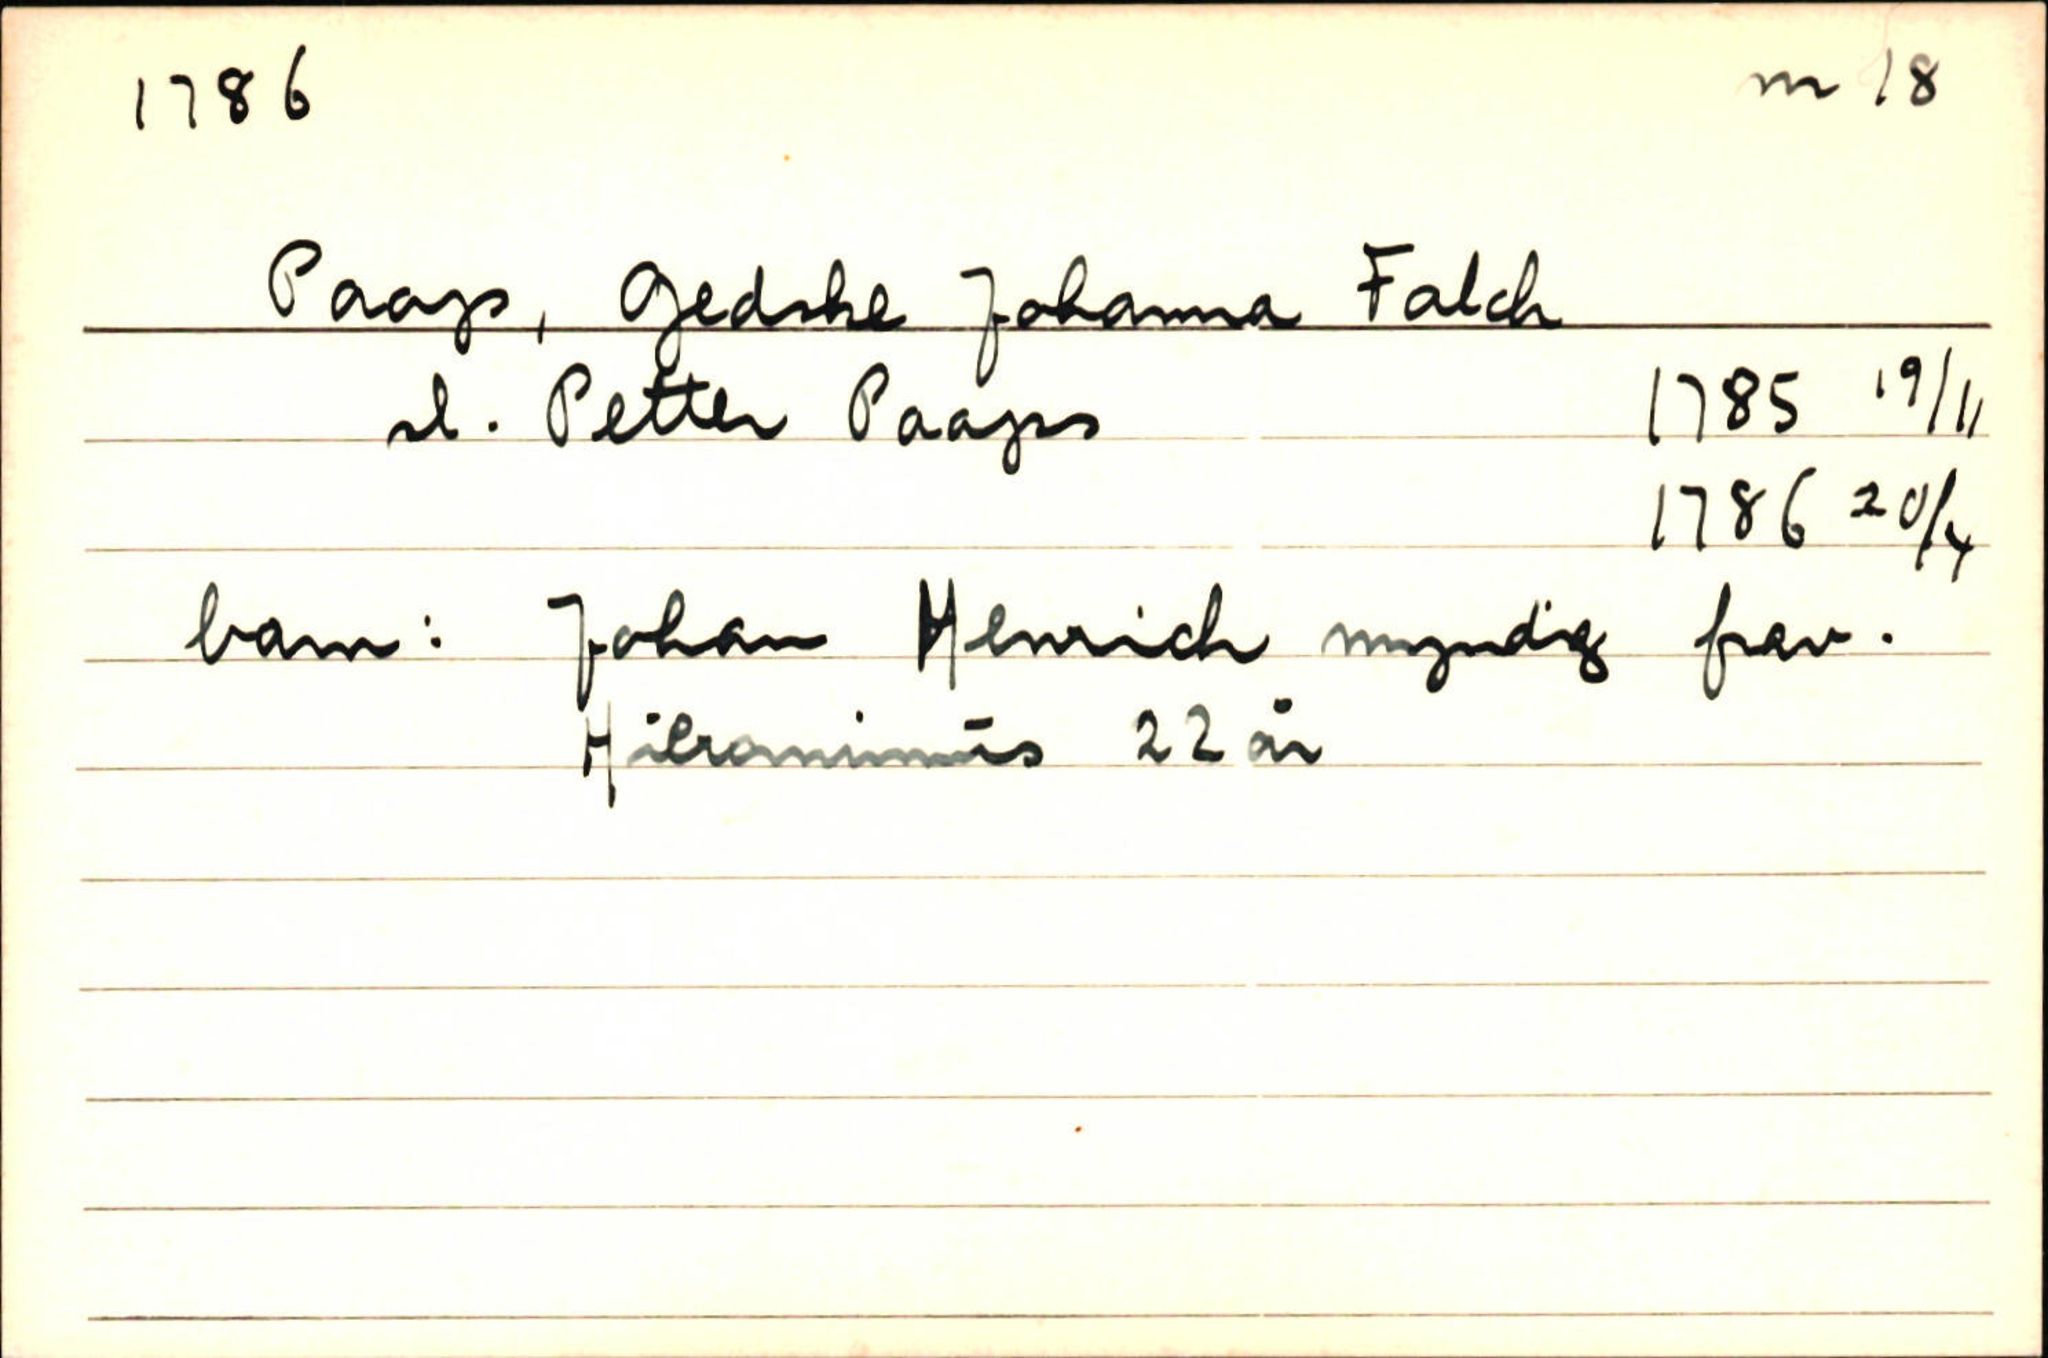 1786 nr 18
Paaps, Gedske Johanna Falch
sl. Petter Paaps 1785 19/11
1786 20/4
barn: Johan Henrich myndig frav.
Hieronimus 22 år